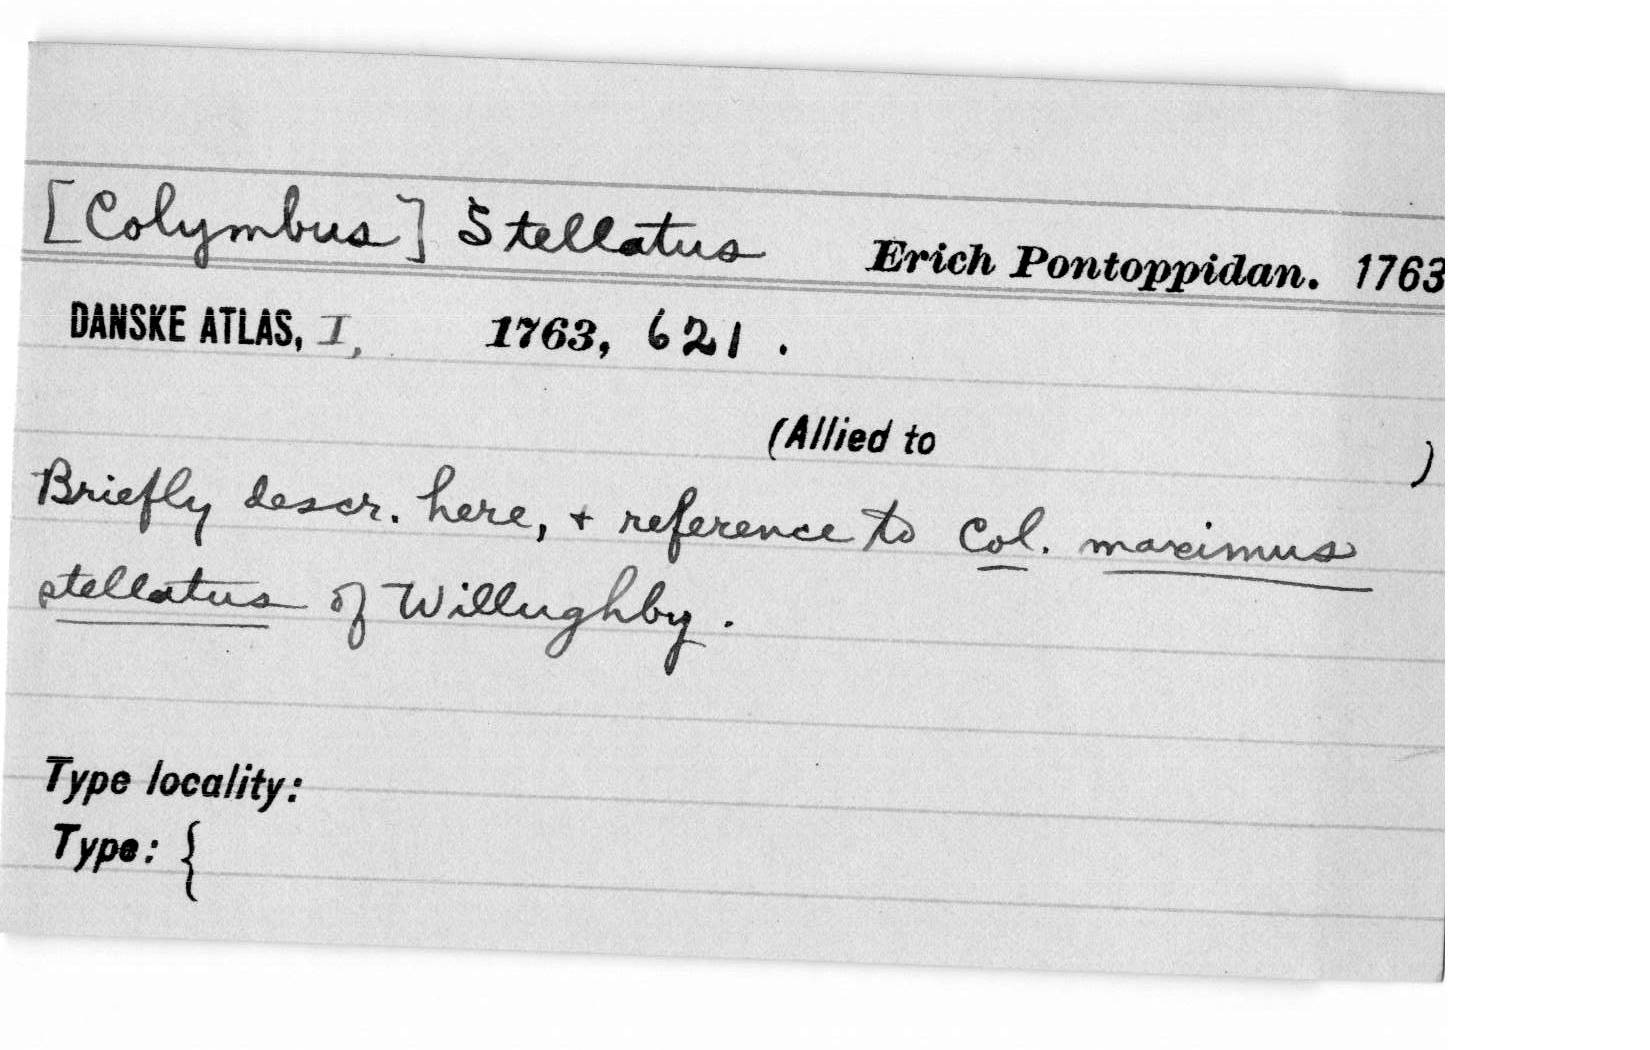 [Colymbus] Stellatus Erich Pontoppidan. 1763
DANSKE ATLAS, I, 1763, 621.
(Allied to )
Briefly descr. here, + reference to Col. maximus
stellatus of Willughby.
Type locality:
Type: {